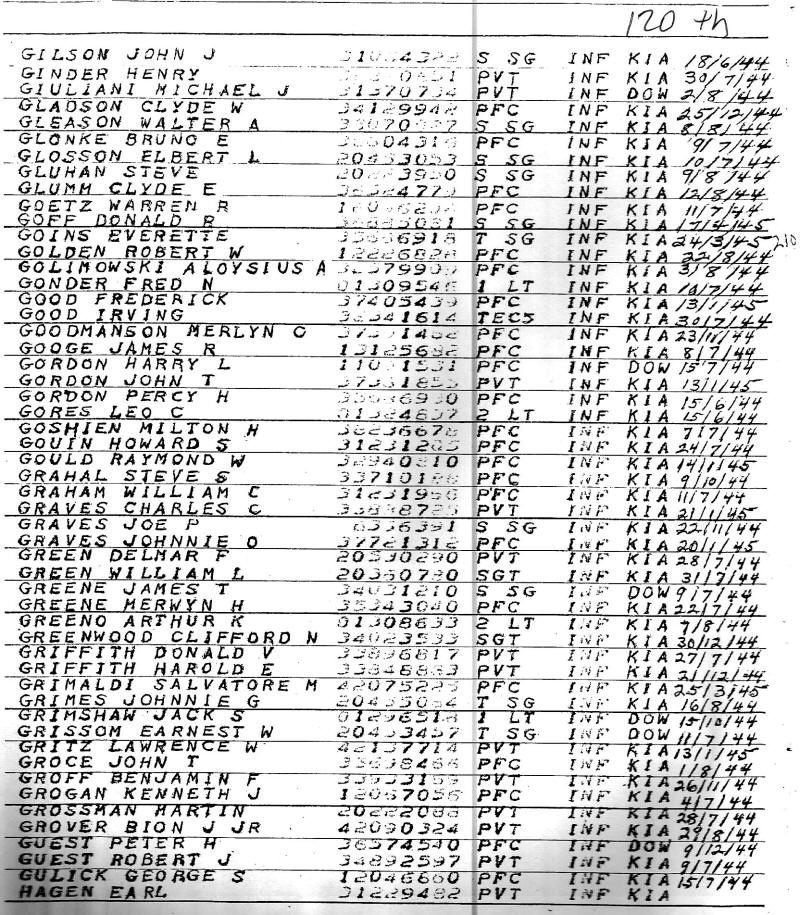 120 th
GILSON JOHN J S SG INF KIA 18/6/44
GINDER HENRY PVT INF KIA 30/7/44
GIULIANI MICHAEL J 31370734 PVT INF DOW 2/8/44
GLADSON CLYDE W 34129942 PFC INF KIA 25/12/44
GLEASON WALTER A S SG INF KIA 8/8/44
GLONKE BRUNO E PFC INF KIA 9/7/44
GLOSSON ELBERT L 20453053 S SG INF KIA 10/7/44
GLUHAN STEVE S SG INF KIA 9/8/44
GLUMM CLYDE E PFC INF KIA 12/8/44
GOETZ WARREN R PFC INF KIA 11/7/44
GOFF DONALD R S SG INF KIA 17/4/45
GOINS EVERETTE T SG INF KIA 24/3/45 210
GOLDEN ROBERT W 12226828 PFC INF KIA 22/8/44
GOLIMOWSKI ALOYSIUS A PFC INF KIA 3/8/44
GONDER FRED N 01309546 1 LT INF KIA 10/7/44
GOOD FREDERICK 37405439 PFC INF KIA 13/1/45
GOOD IRVING TEC5 INF KIA 30/7/44
GOODMANSON MERLYN C PFC INF KIA 23/11/44
GOOGE JAMES R PFC INF KIA 8/7/44
GORDON HARRY L PFC INF DOW 15/7/44
GORDON JOHN T PVT INF KIA 13/1/45
GORDON PERCY H PFC INF KIA 15/6/44
GORES LEO C 2 LT INF KIA 15/6/44
GOSHIEN MILTON H 36236678 PFC INF KIA 7/7/44
GOUIN HOWARD S 31231205 PFC INF KIA 24/7/44
GOULD RAYMOND W PFC INF KIA 14/1/45
GRAHAL STEVE S PFC INF KIA 9/10/44
GRAHAM WILLIAM C PFC INF KIA 11/7/44
GRAVES CHARLES C PVT INF KIA 21/1/45
GRAVES JOE P 6336391 S SG INF KIA 22/11/44
GRAVES JOHNNIE O 37721312 PFC INF KIA 20/1/45
GREEN DELMAR F PVT INF KIA 28/7/44
GREEN WILLIAM L SGT INF KIA 31/7/44
GREENE JAMES T 34031210 S SG INF DOW 9/7/44
GREENE MERWYN H 35343040 PFC INF KIA 22/7/44
GREENO ARTHUR K 01308633 2 LT INF KIA 7/8/44
GREENWOOD CLIFFORD N 34023533 SGT INF KIA 30/12/44
GRIFFITH DONALD V 33896817 PVT INF KIA 27/7/44
GRIFFITH HAROLD E PVT INF KIA 21/12/44
GRIMALDI SALVATORE M 42075225 PFC INF KIA 25/3/45
GRIMES JOHNNIE G T SG INF KIA 16/8/44
GRIMSHAW JACK S 01296518 1 LT INF DOW 15/10/44
GRISSOM EARNEST W 20453457 T SG INF DOW 11/7/44
GRITZ LAWRENCE W 42137714 PVT INF KIA 13/1/45
GROCE JOHN T PFC INF KIA 1/8/44
GROFF BENJAMIN F PVT INF KIA 26/11/44
GROGAN KENNETH J 12067056 PFC INF KIA 4/7/44
GROSSMAN MARTIN 20222088 PVT INF KIA 28/7/44
GROVER BION J JR 42090324 PVT INF KIA 29/8/44
GUEST PETER H 36574540 PFC INF DOW 9/12/44
GUEST ROBERT J 34892597 PVT INF KIA 9/7/44
GULICK GEORGE S 12046660 PFC INF KIA 15/7/44
HAGEN EARL 31229482 PVT INF KIA